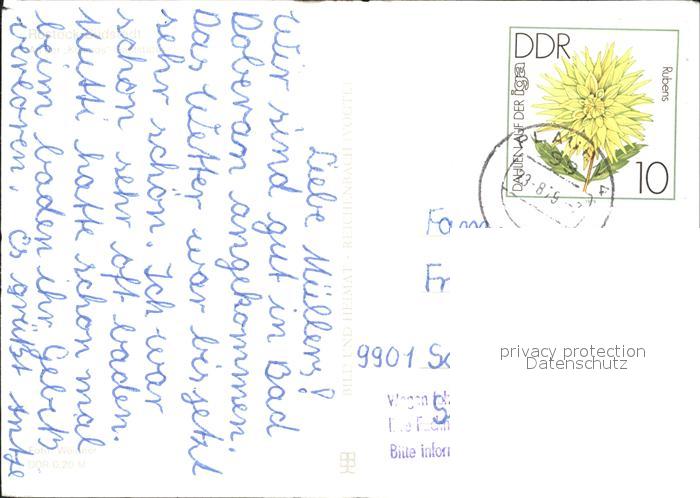 Liebe Müllers!
Wir sind gut in Bad
Doberan angekommen.
Das Wetter war bis jetzt
sehr schön. Ich war
schon sehr oft baden.
Mutti hatte schon mal
beim baden ihr Gebiß
verloren. Es grüßt Antje
DDR
DAHLIEN AUF DER
Rubens
10
Fam
Fr
9901
Bitte infor
BILD UND HEIMAT · REICHENBACH (VOGTL)
DDR 0,20 M
privacy protection
Datenschutz